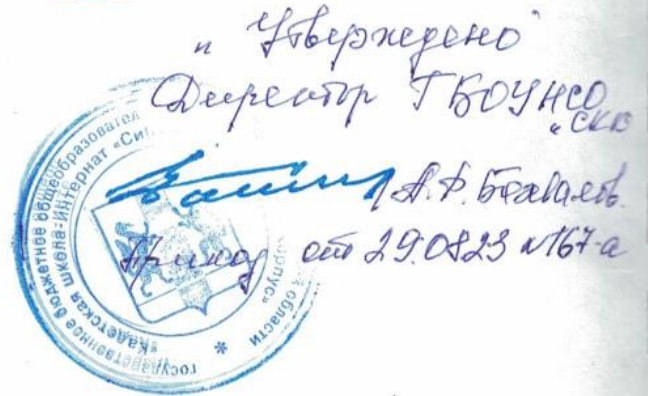 "Утверждено"
Директор ГБОУНСО
"СКК
А.Ф. Бахвалов
Приказ от 29.08.23 №167-а
государственное бюджетное общеобразовател
"Кадетская школа-интернат «Сиб
корпус»
области